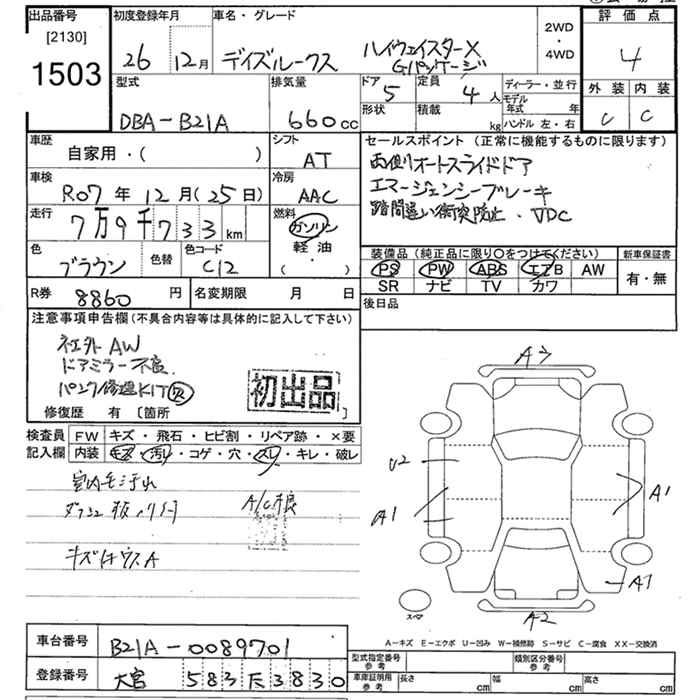 出品番号
[2130]
1503
初度登録年月
26 12月
車名・グレード
デイズルークス ハイウェイスターX
Gパッケージ
2WD
・
4WD
評価点
4
外装 内装
C C
型式
DBA-B21A
排気量
660cc
ドア
5
定員
4人
形状
積載
kg
ディーラー・並行
モデル年式 年
ハンドル 左・右
車歴
自家用・( )
シフト
AT
車検
R07年12月(25日)
冷房
AAC
走行
7万9千733km
燃料
ガソリン
軽油
( ・ )
色
ブラウン
色替
色コード
C12
R券
8860円
名変期限 月 日
セールスポイント(正常に機能するものに限ります)
両側オートスライドドア
エマージェンシーブレーキ
踏間違い衝突防止、VDC
装備品(純正品に限り○をつけてください)
PS PW ABS エアB AW
SR ナビ TV カワ
新車保証書
有・無
後日品
注意事項申告欄(不具合内容等は具体的に記入して下さい)
社外AW
ドアミラー不良
パンク修理KIT欠
初出品
修復歴 有 〔箇所 〕
検査員
記入欄
FW キズ・飛石・ヒビ割・リペア跡・×要
内装 キズ・汚れ・コゲ・穴・スレ・キレ・破レ
室内毛汚れ
ダッシュ板
A/C
A3
U2
A1
A1
A1
A2
スペア
A-キズ E-エクボ U-凹み W-補修跡 S-サビ C-腐食 XX-交換済
車台番号
B21A-0089701
登録番号
大宮 583 3830
型式指定番号
参考
類別区分番号
参考
車庫証明用
参考
長さ cm
幅 cm
高さ cm